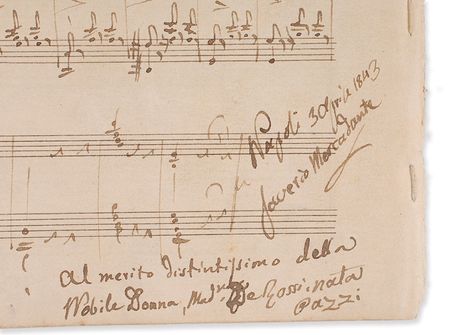 Napoli 3 Aprile 1843
Saverio Mercadante
Al merito distintissimo della
Nobile Donna, Mad. De Rossinata
Pazzi